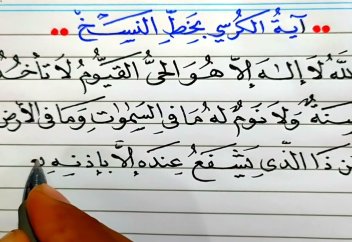 آيةُ الكُرسي بِخَطِّ النَّسِخْ
للَّهُ لَا إِلٰهَ إِلَّا هُوَ الحَيُّ القَيُّومُ لَا تَأْخُذُ
سِنَةٌ وَلَا نَوْمٌ لَهُ مَا فِي السَّمٰوٰتِ وَمَا فِي الأَرْضِ
مَن ذَا الَّذِي يَشْفَعُ عِندَهُ إِلَّا بِإِذْنِهِ يع